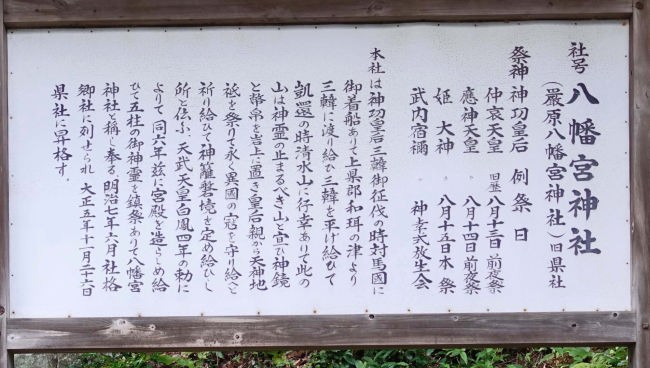 社号 八幡宮神社
(厳原八幡宮神社) 旧県社
祭神 神功皇后 例祭日
仲哀天皇 旧暦 八月十三日 前夜祭
應神天皇 〃 八月十四日 前夜祭
姫大神 〃 八月十五日 本祭
武内宿禰 神幸式放生会
本社は神功皇后三韓御征伐の時対馬國に
御着船ありて上県郡和珥の津より
三韓に渡り給ひ三韓を平げ給ひて
凱還の時清水山に行幸ありて此の
山は神霊の止まるべき山と宣ひ神鏡
と幣帛を岩上に置き皇后親から天神地
祇を祭りて永く異國の寇を守り給へと
祈り給ひて神籬磐境を定め給ひし
所と伝ふ、天武天皇白鳳四年の勅に
よりて同六年茲に宮殿を造らしめ給
ひて五柱の御神霊を鎮祭ありて八幡宮
神社と稱し奉る、明治七年六月社格
郷社に列せられ大正五年十一月二十六日
県社に昇格す。